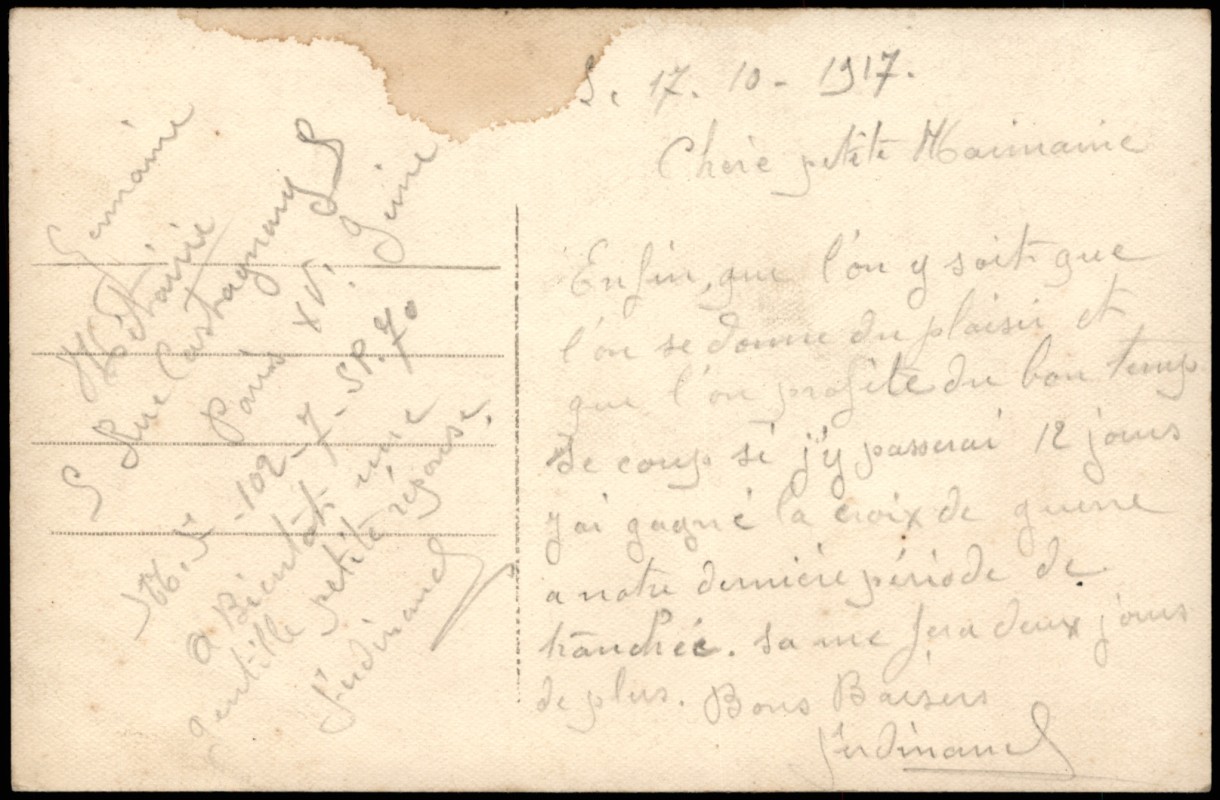 S. 17. 10 - 1917.
Chere petite Maimaine
Enfin, que l'on y soit que
l'on se donne du plaisir et
que l'on profite du bon temp
de coup si j'y passerai 12 jours
j'ai gagné la croix de guerre
a notre dernière période de
tranchée. sa me fera deux jours
de plus. Bons Baisers
Ferdinand
Germaine
Métairie
5 Rue Castagnary
Paris XV. Seine
102 - 7 - SP. 70
a Bientôt une
gentille petite réponse.
Ferdinand